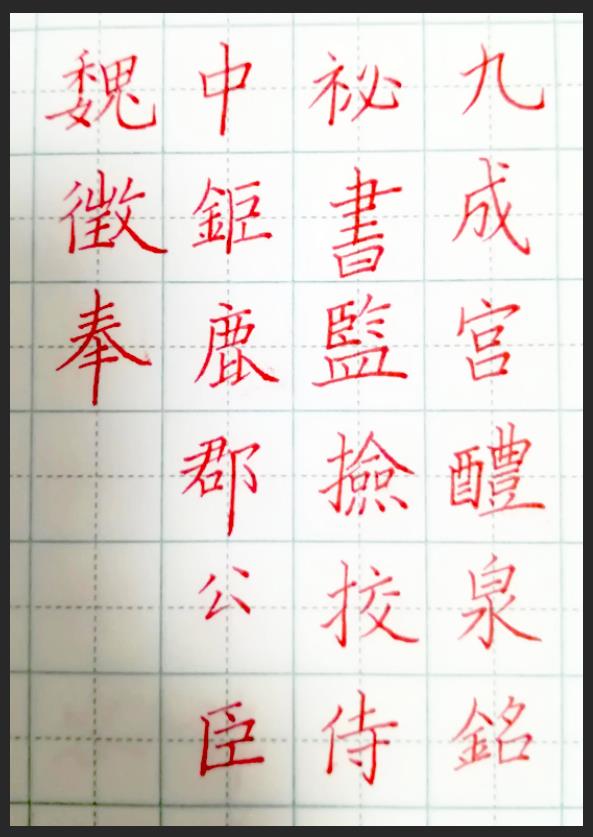 九成宫醴泉銘
祕書監撿挍侍
中鉅鹿郡公臣
魏徵奉